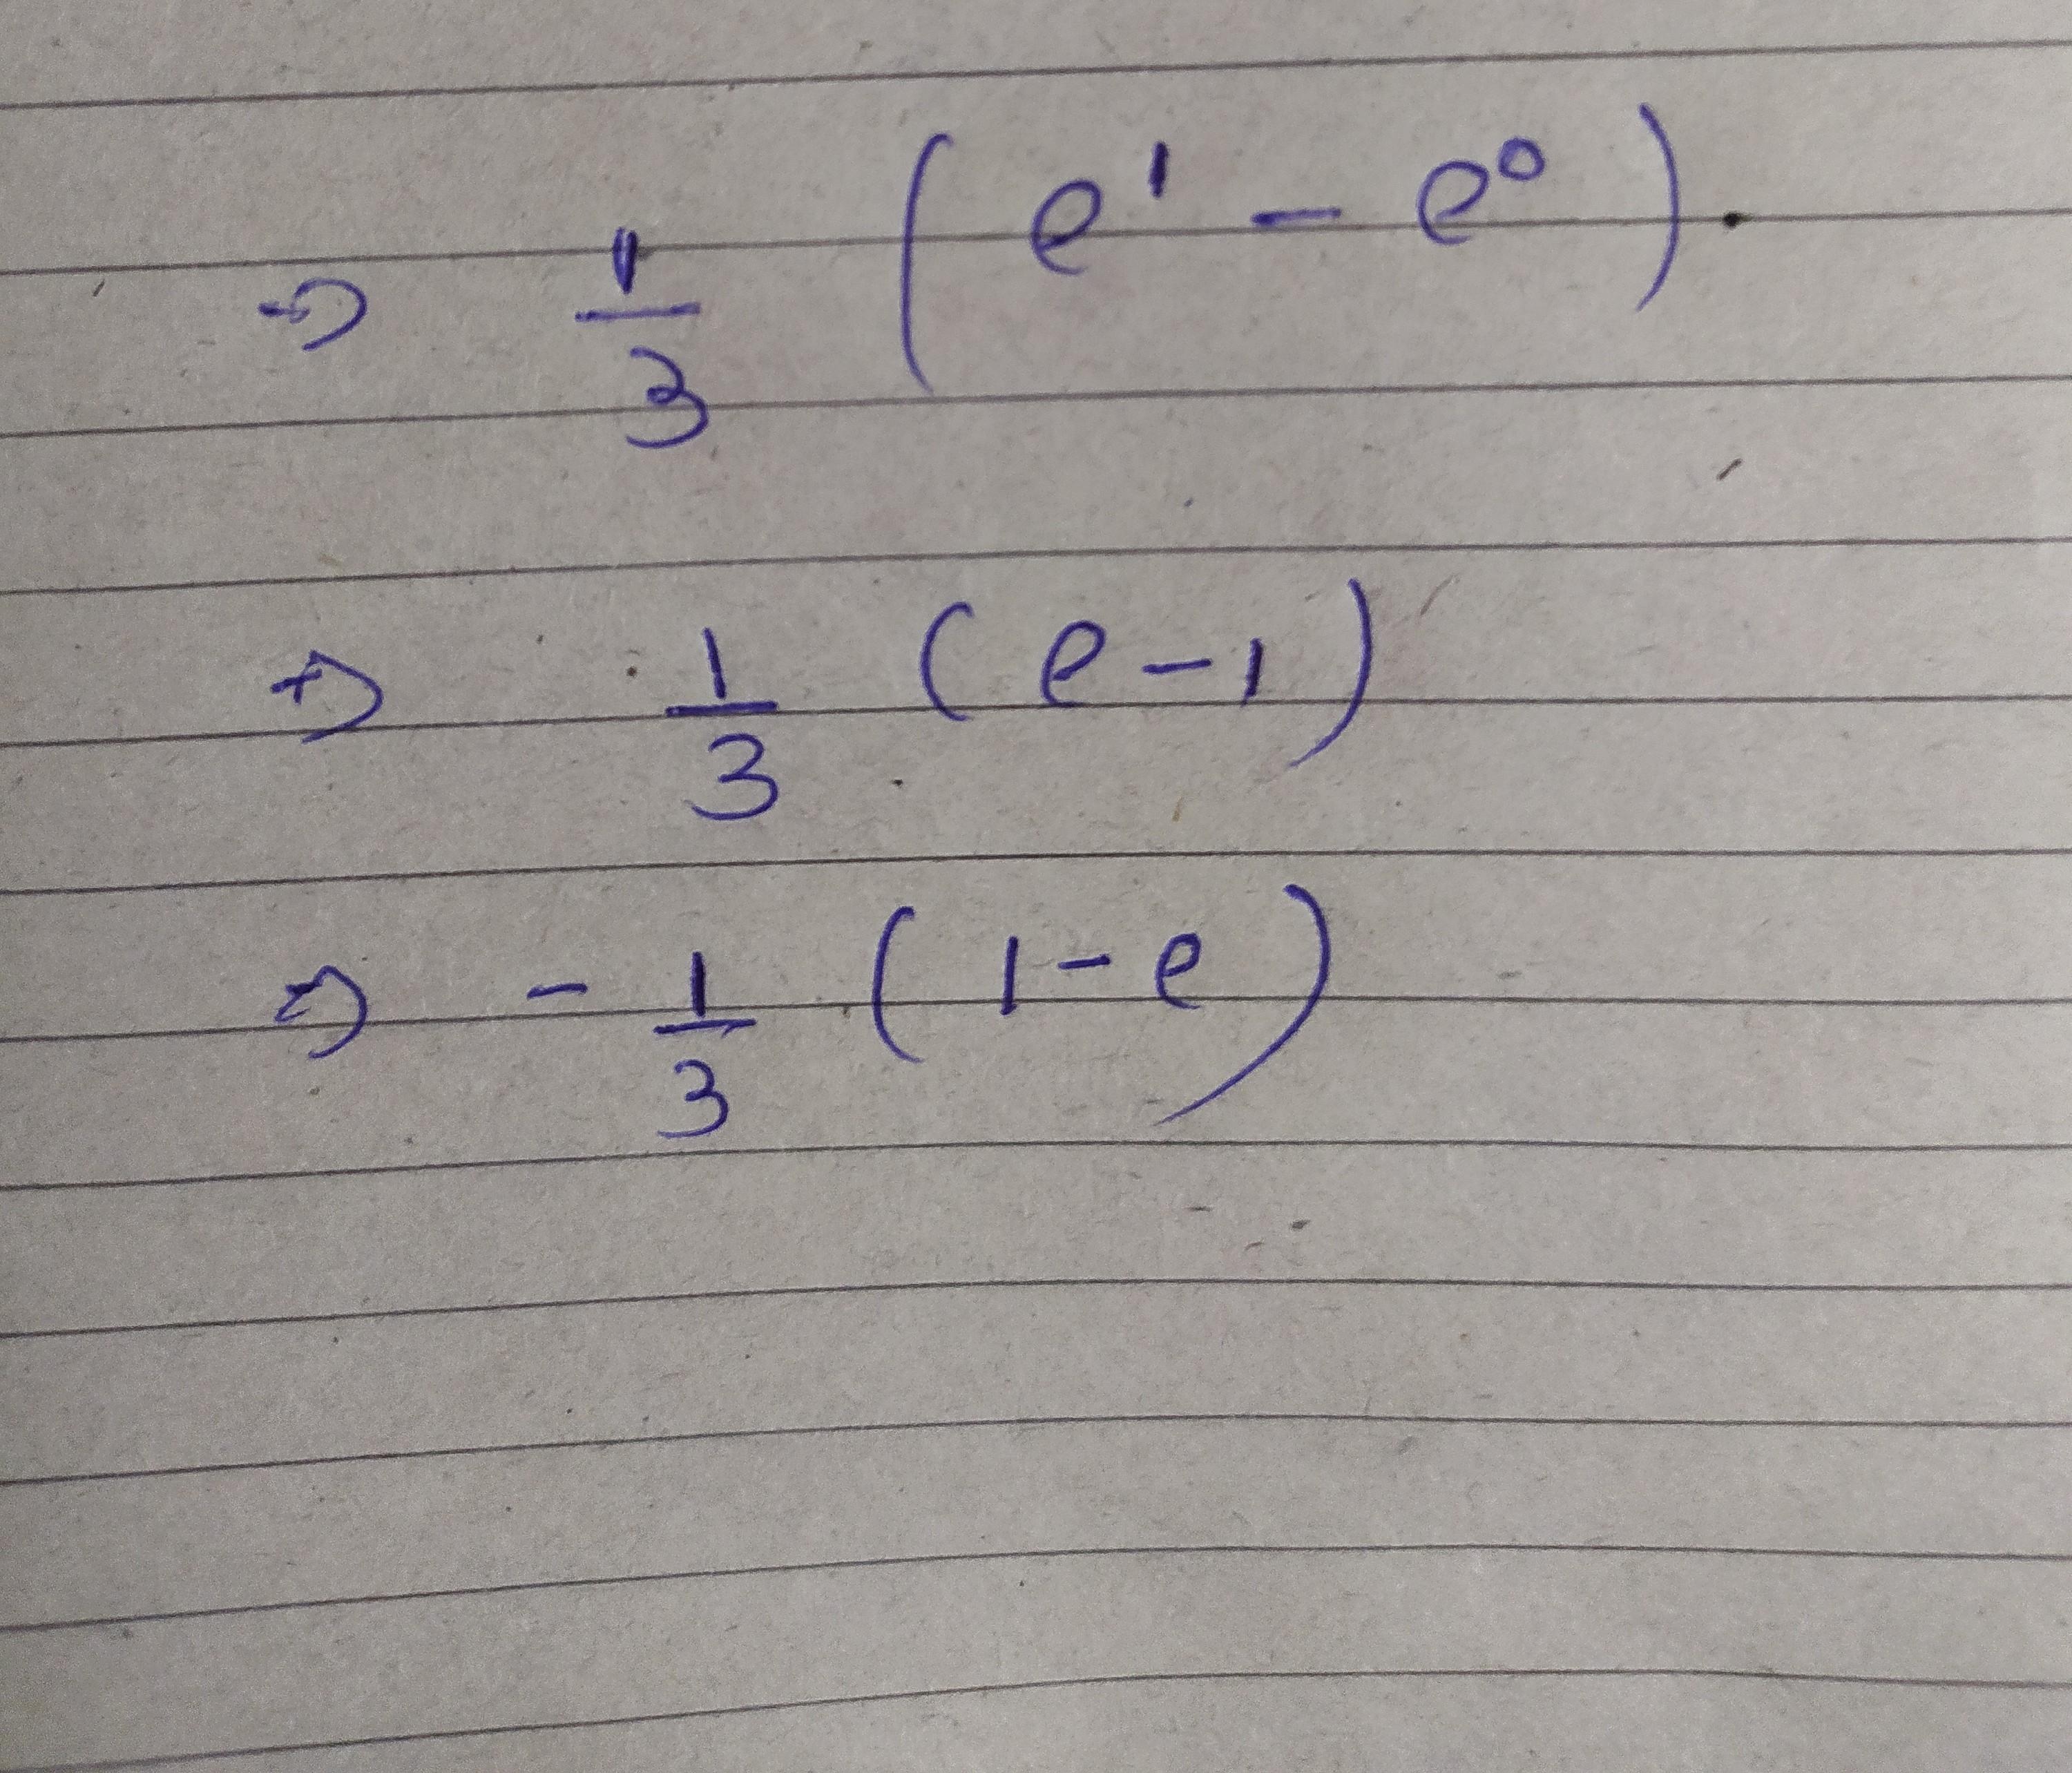 ⇒ 1/3 (e¹ - e⁰).
⇒ 1/3 (e - 1)
⇒ - 1/3 (1 - e)